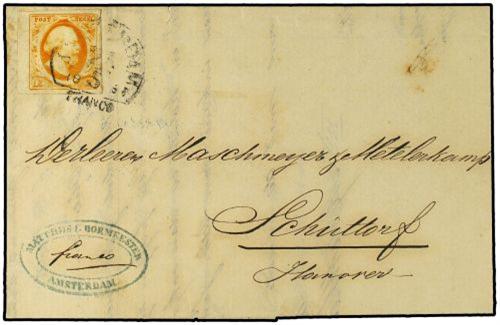 POST ZEGEL
FRANCO
De Heeren Maschmeyer & Metelerkamp
Schüttorf
Hanover
MATTHIJS E. BORMEESTER
franco
AMSTERDAM